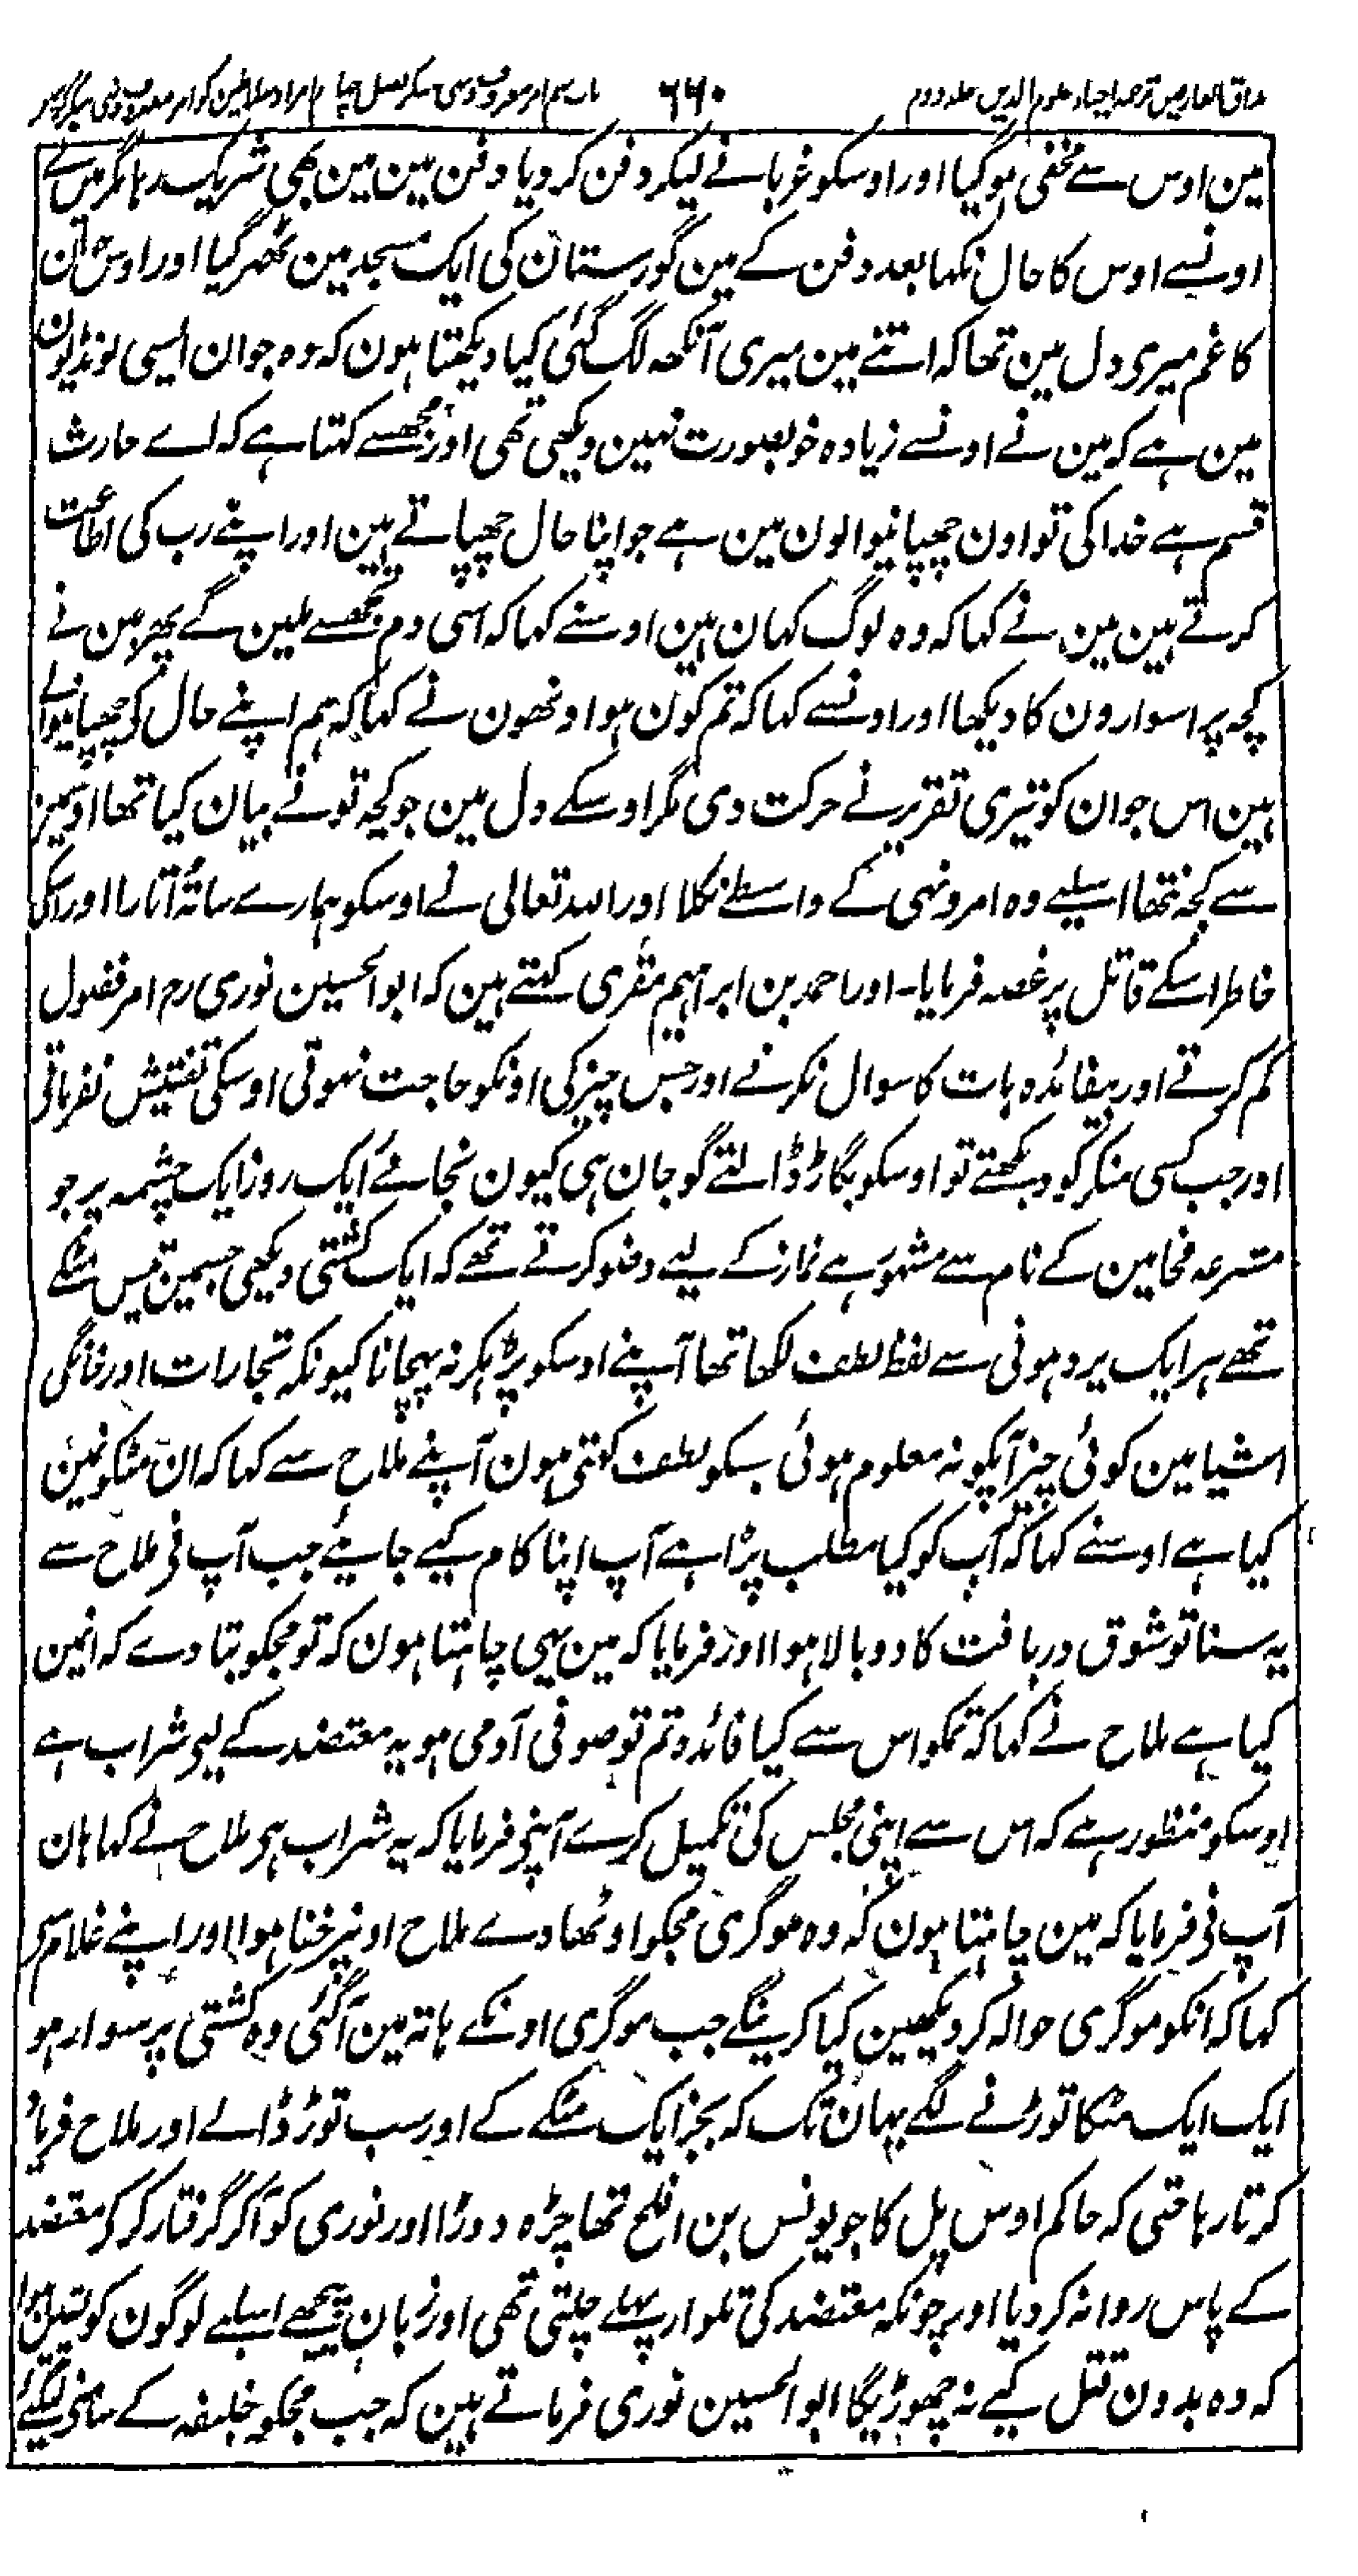 مذاق العارفین ترجمہ احیاء علوم الدین جلد دوم ۶۶۰ باب نہم امر معروف و نہی منکر فصل چہارم امرا و سلاطین کو امر معروف و نہی منکر کرنیکا ذکر
مین اوس سے مخفی ہوگیا اور اوسکو غربا نے لیکر دفن کر دیا دفن مین مین بھی شریک رہا مگر مین نے
اونسے اوس کا حال نکہا بعد دفن کے مین گورستان کی ایک مسجد مین ٹھر گیا اور اوس جوان
کا غم میری دل مین تھا کہ اتنے مین میری آنکھ لگ گئی کیا دیکھتا ہون کہ وہ جوان ایسی لونڈیون
مین ہے کہ مین نے اونسے زیادہ خوبصورت نہین دیکھی تھی اور مجھسے کہتا ہے کہ اے حارث
قسم ہے خدا کی تو اون چھپانیوالون مین ہے جو اپنا حال چھپاتے ہین اور اپنے رب کی اطاعت
کرتے ہین مین نے کہا کہ وہ لوگ کہان ہین اوسنے کہا کہ اسی دم تجھسے ملین گے پھر مین نے
کچہ پرا سوارون کا دیکھا اور اونسے کہا کہ تم کون ہو اونھون نے کہا کہ ہم اپنے حال کی چھپانیوالے
ہین اس جوان کو تیری تقریر نے حرکت دی مگر اوسکے دل مین جو کچہ تو نے بیان کیا تھا اوسمین
سے کچہ نتھا اسلیے وہ امر و نہی کے واسطے نکلا اور اللہ تعالی نے اوسکو ہمارے ساتہ اتارا اور اسکی
خاطر اسکے قاتل پر غصہ فرمایا۔ اور احمد بن ابراہیم مقری کہتے ہین کہ ابو الحسین نوری رح امر فضول
کم کرتے اور بیفائدہ بات کا سوال نکرتے اور جس چیز کی اونکو حاجت نہوتی اوسکی تفتیش نفرماتے
اور جب کسی منکر کو دیکھتے تو اوسکو بگاڑ ڈالتے گو جان ہی کیون نجائے ایک روز ایک چشمہ پر جو
مشرعہ فحامین کے نام سے مشہور ہے نماز کے لیے وضو کرتے تھے کہ ایک کشتی دیکھی جسمین تیس مٹکے
تھے ہر ایک پر دہونی سے لفظ لطف لکھا تھا آپنے اوسکو پڑہکر نہ پہچانا کیونکہ تجارات اور خانگی
اشیا مین کوئی چیز آپکو نہ معلوم ہوئی جسکو لطف کہتی ہون آپنے ملاح سے کہا کہ ان مٹکونمین
کیا ہے اوسنے کہا کہ آپ کو کیا مطلب پڑا ہے آپ اپنا کام کیے جایئے جب آپ نی ملاح سے
یہ سنا تو شوق دریافت کا دوبالا ہوا اور فرمایا کہ مین یہی چاہتا ہون کہ تو مجکو بتا دے کہ انمین
کیا ہے ملاح نے کہا کہ تمکو اس سے کیا فائدہ تم تو صوفی آدمی ہو یہ معتضد کے لیی شراب ہے
اوسکو منظور ہے کہ اس سے اپنی مجلس کی تکمیل کرے آپنی فرمایا کہ یہ شراب ہی ملاح نے کہا ہان
آپ نی فرمایا کہ مین چاہتا ہون کہ وہ موگری مجکو اوٹھا دے ملاح اونپر خفا ہوا اور اپنے غلام سی
کہا کہ انکو موگری حوالہ کر دیکھین کیا کرینگے جب موگری اونکے ہاتہ مین آگئی وہ کشتی پر سوار ہو
ایک ایک مٹکا توڑنے لگے یہان تک کہ بجز ایک مٹکے کے اور سب توڑ ڈالے اور ملاح فریاد
کرتا رہا حتی کہ حاکم اوس پل کا جو یونس بن افلح تھا چڑہ دوڑا اور نوری کو آکر گرفتار کر کر معتضد
کے پاس روانہ کر دیا اور چونکہ معتضد کی تلوار پہلے چلتی تھی اور زبان پیچھے اسلیے لوگون کو یقین ہوا
کہ وہ بدون قتل کیے نہ چھوڑیگا ابو الحسین نوری فرماتے ہین کہ جب مجکو خلیفہ کے سامنی لیگئے